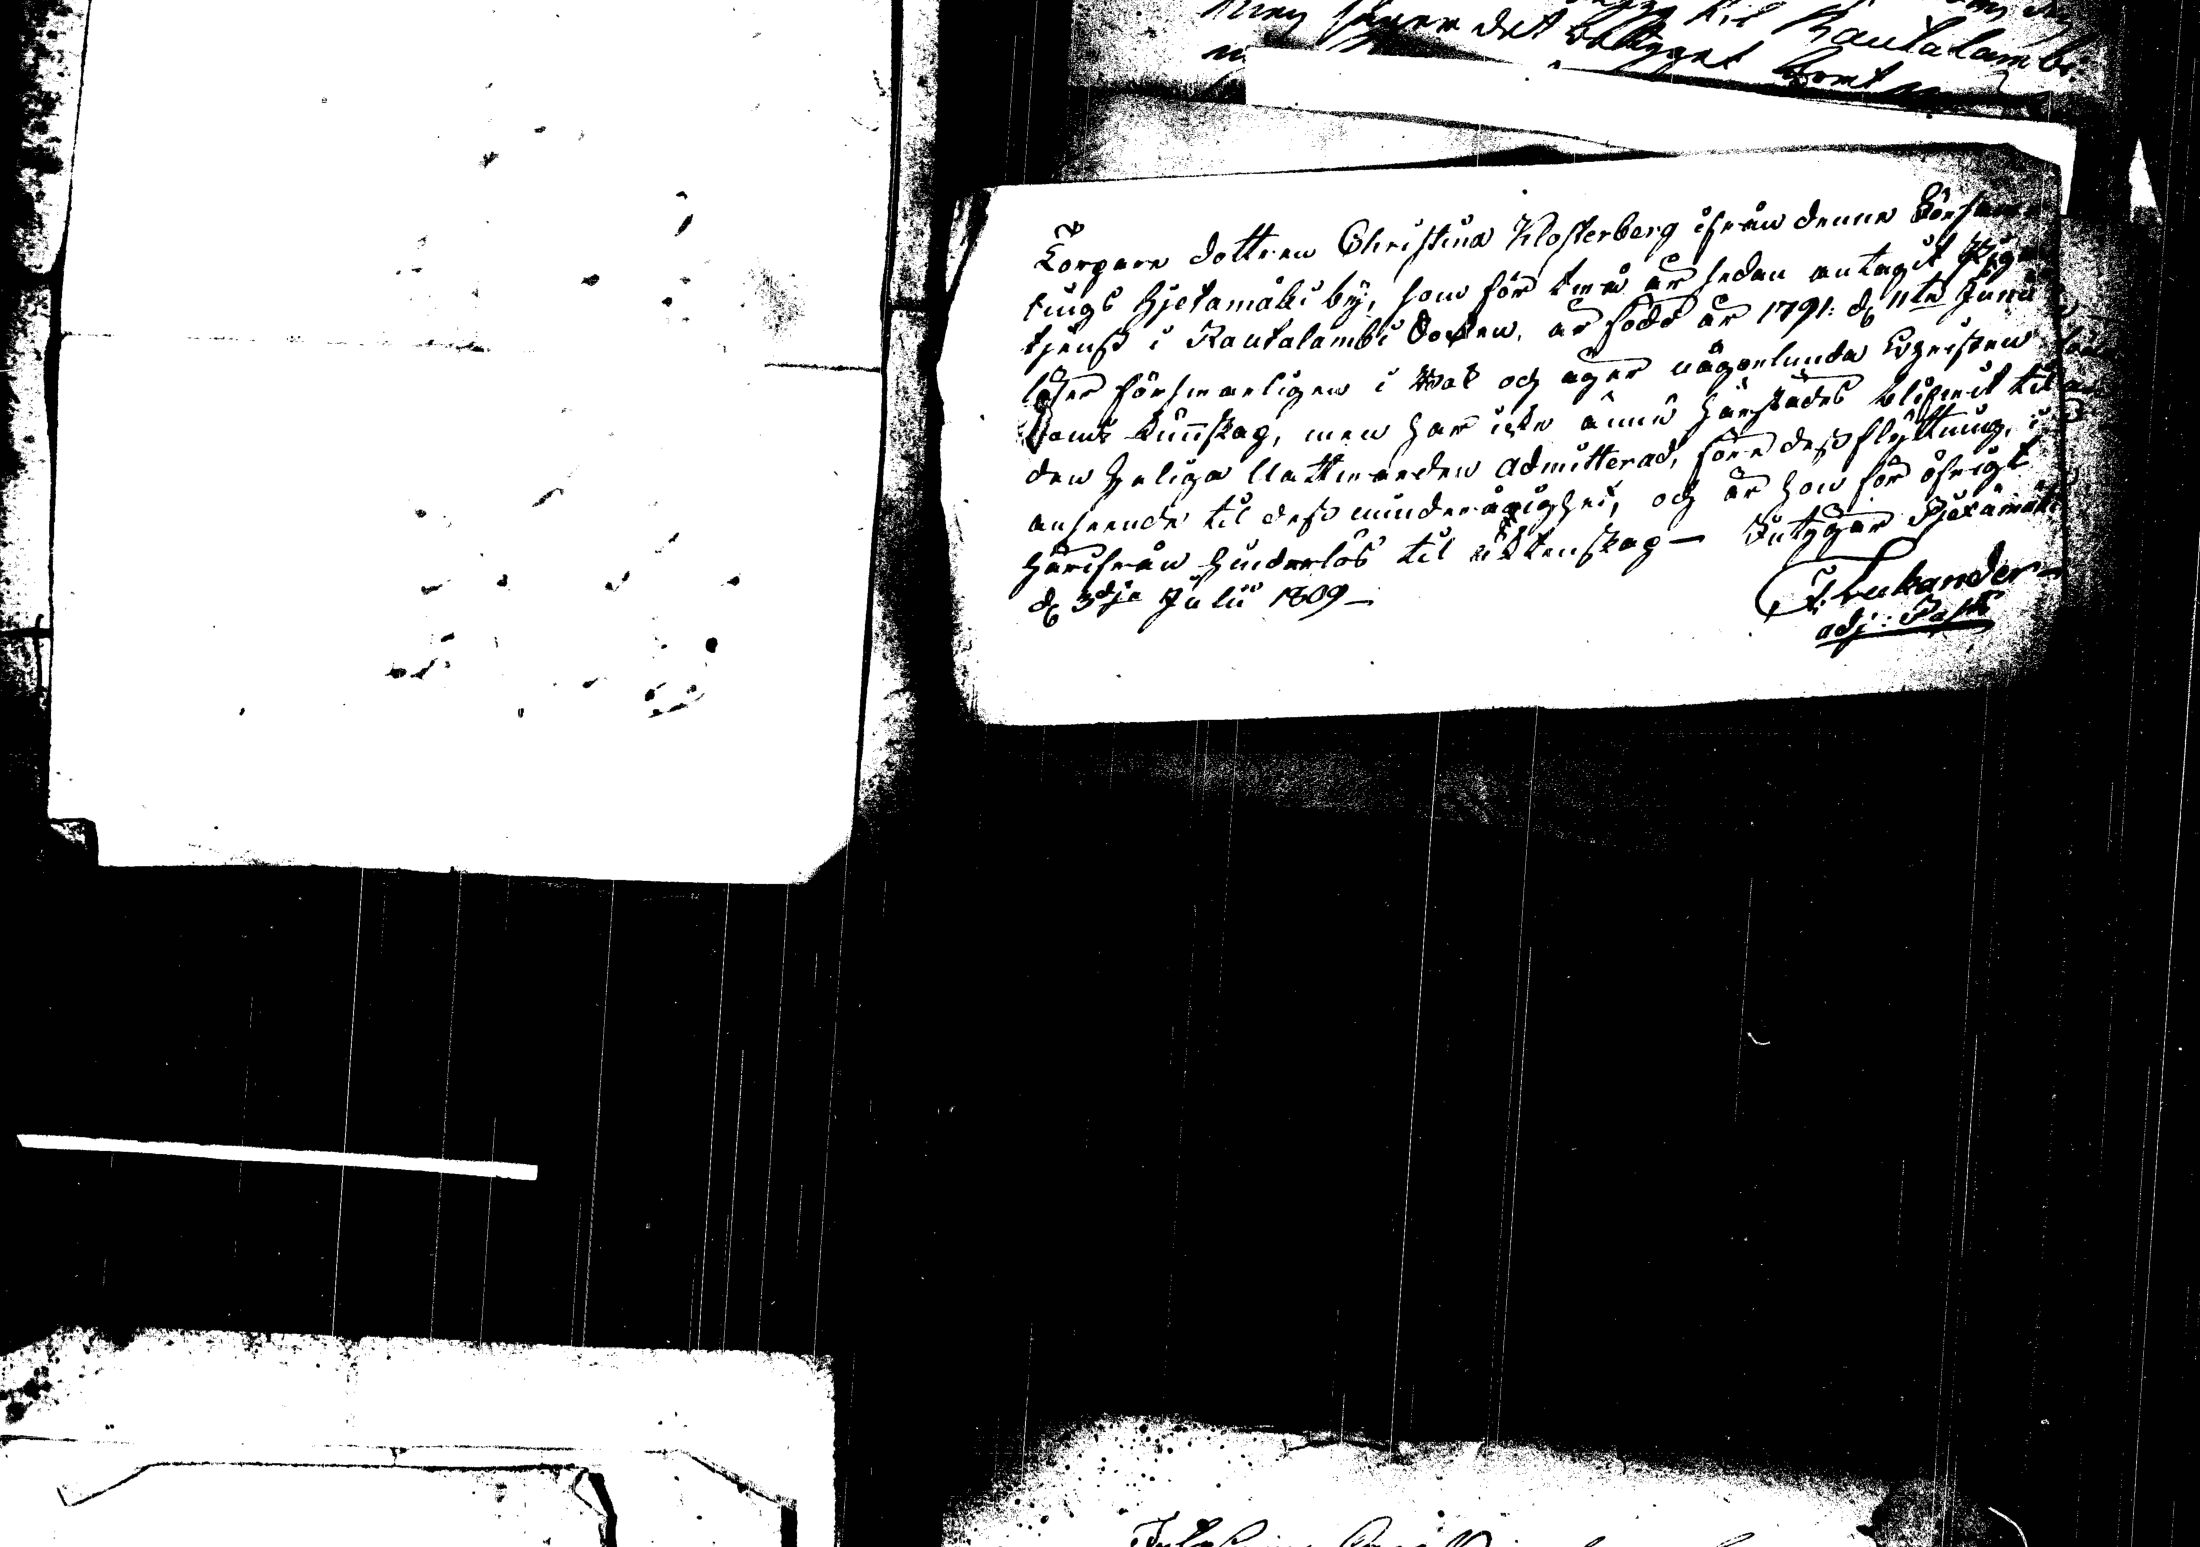 til Rautalambi
Torpare dottren Christina Klosterberg ifrån denne Försam
lings Hjetamäki by, som för två år sedan antagit
tjenst i Rautalambi Socken, är född år 1791 d. 11te Junii
läser försvarligen i bok och äger någorlunda Christen
doms kunskap, men har icke ännu härstädes blifvit til
den heliga Nattwarden admitterad, före dess flyttning, i
anseende til dess minderårighet, och är hon för öfrigt
härifrån hinderlös til ächtenskap — Intygar
d. 3dje Julii 1809 —
adj: Past: